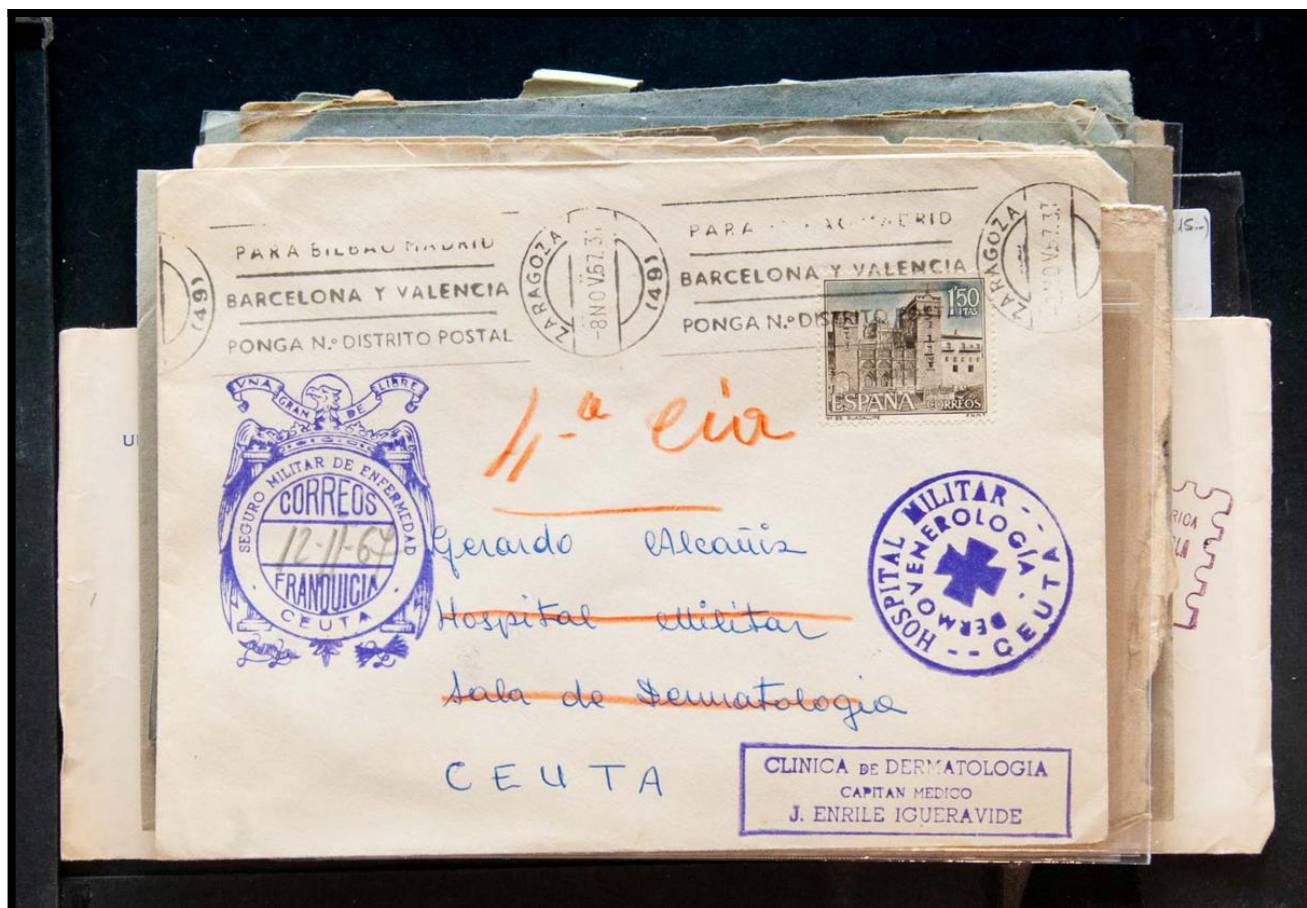 PARA BILBAO MADRID
BARCELONA Y VALENCIA
PONGA N.º DISTRITO POSTAL
ZARAGOZA
-8 NOV.67.31
(49)
PARA MADRID
BARCELONA Y VALENCIA
PONGA N.º DISTRITO
ZARAGOZA
NOV.67.31
(49)
15.-)
1'50
PTAS
ESPAÑA CORREOS
Mº DE GUADALUPE F.N.M.T.
VNA GRANDE LIBRE
SEGURO MILITAR DE ENFERMEDAD
CORREOS
12-11-67
FRANQUICIA
CEUTA
4-ª cia
Gerardo Alcañiz
Hospital Militar
Sala de Dermatologia
CEUTA
HOSPITAL MILITAR -- CEUTA --
DERMOVENEROLOGÍA -
CLINICA DE DERMATOLOGIA
CAPITAN MEDICO
J. ENRILE IGUERAVIDE
RICA